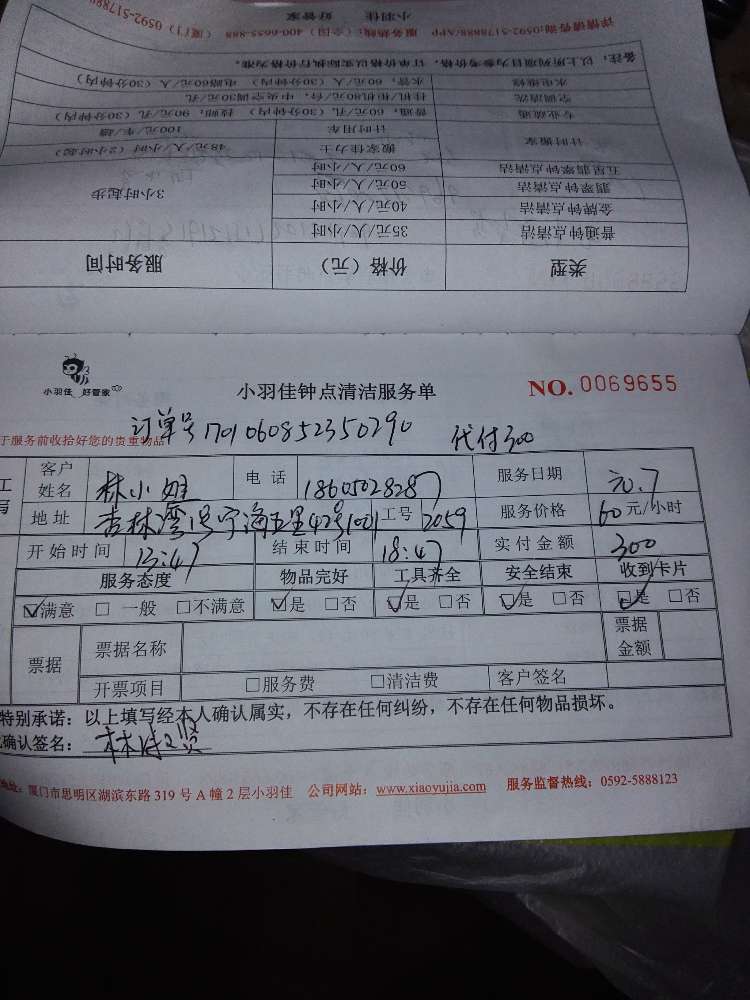 类型 价格（元） 服务时间
普通钟点清洁 35元/人/小时
金牌钟点清洁 40元/人/小时
翡翠钟点清洁 50元/人/小时 3小时起步
五星翡翠钟点清洁 60元/人/小时
计时搬家 搬家佳力士 48元/人/小时（2小时起）
计时用车 100元/车/趟
专业疏通 普通，60元/孔（30分钟内） 90元/孔（30分钟内）
空调清洗 挂机/柜机80元/台，中央空调30元/孔
水电维修 水管，60元/人（30分钟内） 电路60元/人（30分钟内）
备注：以上所列项目为参考价格，订单价格以实际执行价格为准。
详情请咨询:0592-5178888/APP 服务热线:（全国）400-6655-888 （厦门）0592-517888
小羽佳 好管家
小羽佳 好管家
小羽佳钟点清洁服务单 NO. 0069655
订单号 1701060852350290 代付300
于服务前收拾好您的贵重物品
客户姓名 林小姐 电话 18605028287 服务日期 元.7
地址 杏林湾 宁海五里42号1001 工号 2059 服务价格 60元/小时
开始时间 13:47 结束时间 18:47 实付金额 300
服务态度 物品完好 工具齐全 安全结束 收到卡片
☑满意 □一般 □不满意 ☑是 □否 ☑是 □否 ☑是 □否 ☑是 □否
票据 票据名称 票据金额
开票项目 □服务费 □清洁费 客户签名
特别承诺：以上填写经本人确认属实，不存在任何纠纷，不存在任何物品损坏。
确认签名：
地址：厦门市思明区湖滨东路 319 号 A 幢 2 层小羽佳 公司网站：www.xiaoyujia.com 服务监督热线：0592-5888123